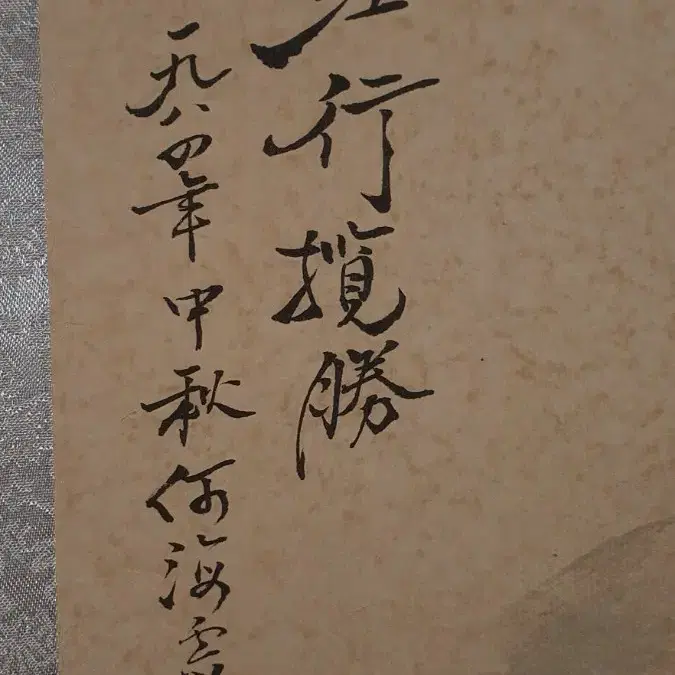 行攬勝
一九八四年中秋何海